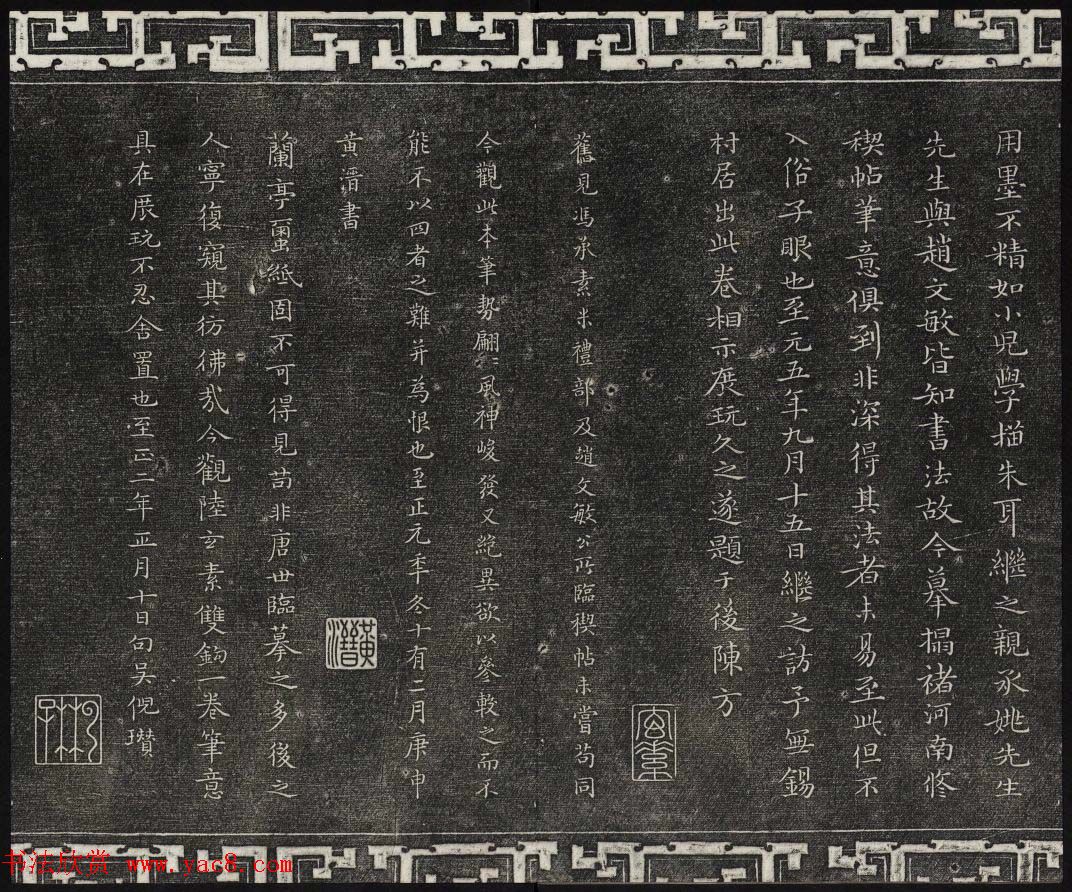 用墨不精如小児學描朱耳繼之親承姚先生
先生與趙文敏皆知書法故今摹搨褚河南脩
禊帖筆意俱到非深得其法者未易至此但不
入俗子眼也至元五年九月十五日繼之訪予無錫
村居出此卷相示展玩久之遂題于後陳方
舊見馮承素米禮部及趙文敏公所臨禊帖未嘗苟同
今觀此本筆勢翩〻風神峻發又綂異欲以參較之而不
能不以四者之難并為恨也至正元年冬十有二月庚申
黄溍書
黄溍
蘭亭蠒紙固不可得見苟非唐世臨摹之多後之
人寧復窺其彷彿哉今觀陸玄素雙鉤一卷筆意
具在展玩不忍舍置也至正二年正月十日句吴倪瓚
书法欣赏 www.yac8.com